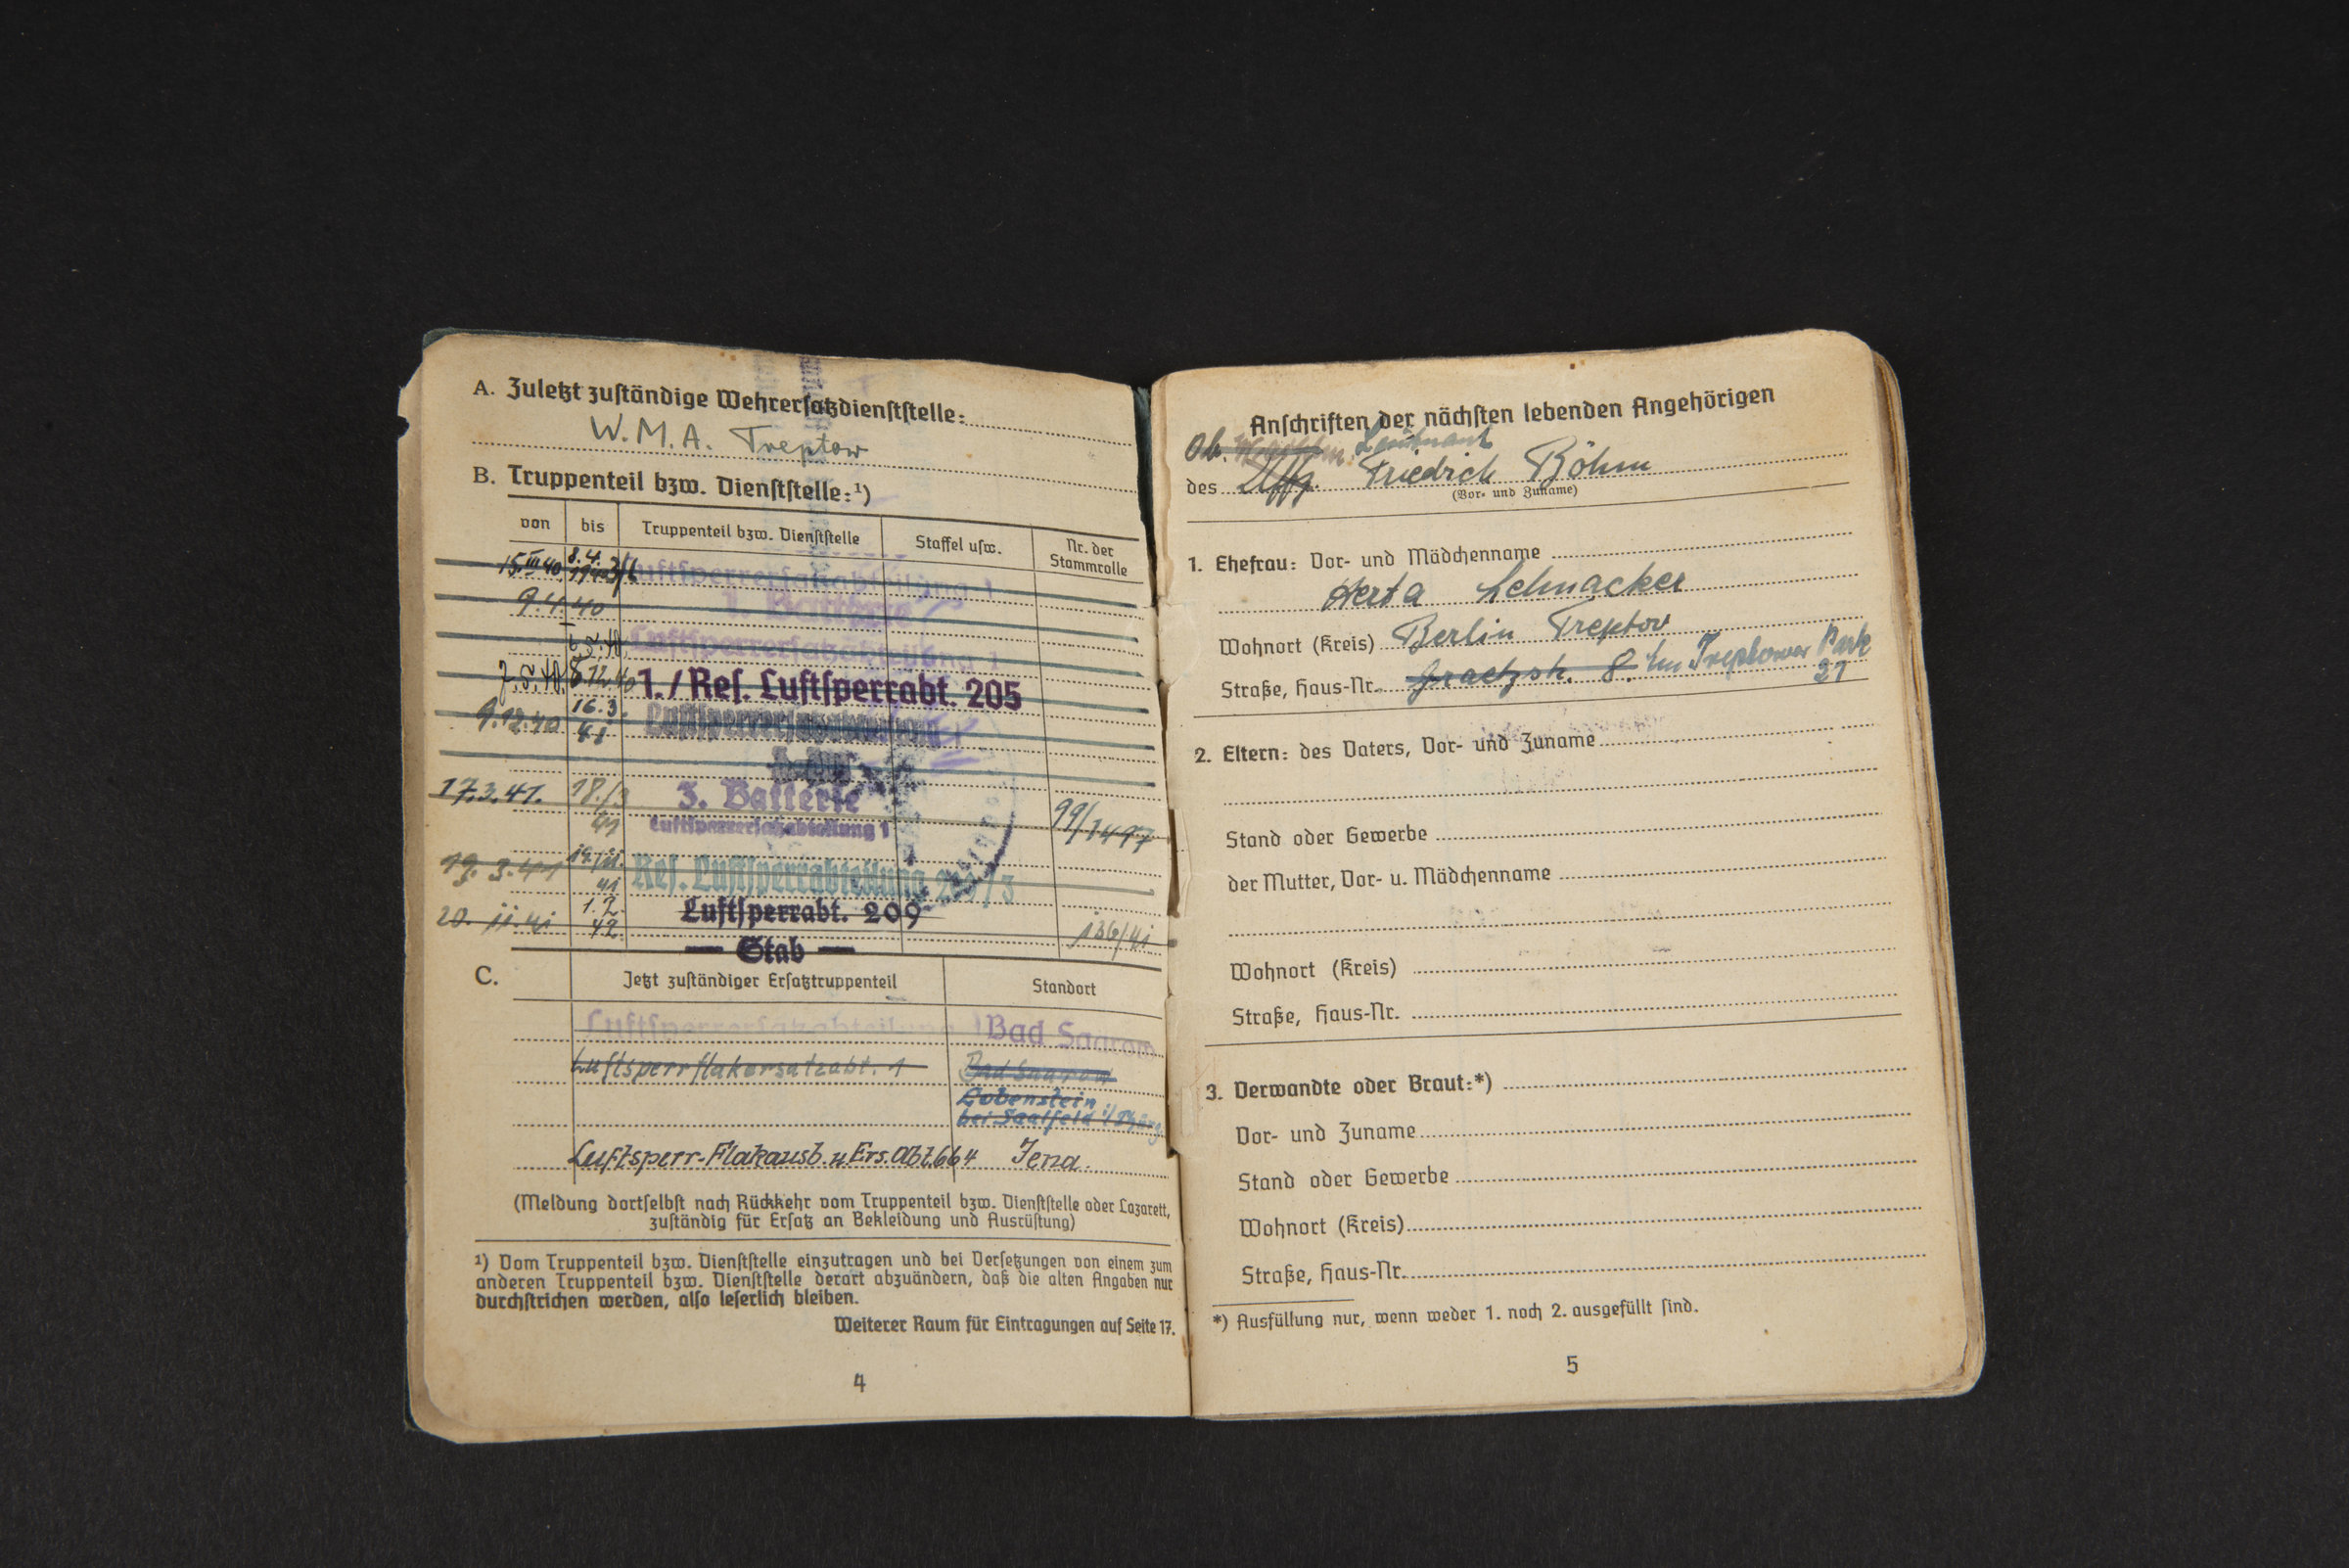 A. Zuletzt zuständige Wehrersatzdienststelle:
W.M.A. Treptow
B. Truppenteil bzw. Dienststelle:¹)
von bis Truppenteil bzw. Dienststelle Staffel usw. Nr. der Stammrolle
15.III.40. 8.4. Luftsperrersatzabteilung 1
9.4.40 1. Batterie
Luftsperrersatzabteilung 1
7.5.40. 8.12.40 1./Res. Luftsperrabt. 205
9.12.40 16.3. 41
17.3.41. 18./3 41 3. Batterie 99/1497
Luftsperrersatzabteilung 1
19.3.41 19./11. 41 Res. Luftsperrabteilung
20.11.41 1.2. 42 Luftsperrabt. 209 136/41
— Stab —
C. Jetzt zuständiger Ersatztruppenteil Standort
Luftsperrersatzabteilung 1 Bad Saarow
Luftsperrflakersatzabt. 1 Bad Saarow
Lobenstein
bei Saalfeld
Luftsperr-Flakausb. u. Ers. Abt. 664 Jena.
(Meldung dortselbst nach Rückkehr vom Truppenteil bzw. Dienststelle oder Lazarett,
zuständig für Ersatz an Bekleidung und Ausrüstung)
¹) Vom Truppenteil bzw. Dienststelle einzutragen und bei Versetzungen von einem zum
anderen Truppenteil bzw. Dienststelle derart abzuändern, daß die alten Angaben nur
durchstrichen werden, also leserlich bleiben.
Weiterer Raum für Eintragungen auf Seite 17.
4
Anschriften der nächsten lebenden Angehörigen
Ob. Leutnant
des Uffz. Friedrich Böhm
(Vor- und Zuname)
1. Ehefrau: Vor- und Mädchenname
Herta Schnacker
Wohnort (Kreis) Berlin Treptow
Straße, Haus-Nr. Graetzstr. 8. Am Treptower Park
21
2. Eltern: des Vaters, Vor- und Zuname
Stand oder Gewerbe
der Mutter, Vor- u. Mädchenname
Wohnort (Kreis)
Straße, Haus-Nr.
3. Verwandte oder Braut:*)
Vor- und Zuname
Stand oder Gewerbe
Wohnort (Kreis)
Straße, Haus-Nr.
*) Ausfüllung nur, wenn weder 1. noch 2. ausgefüllt sind.
5